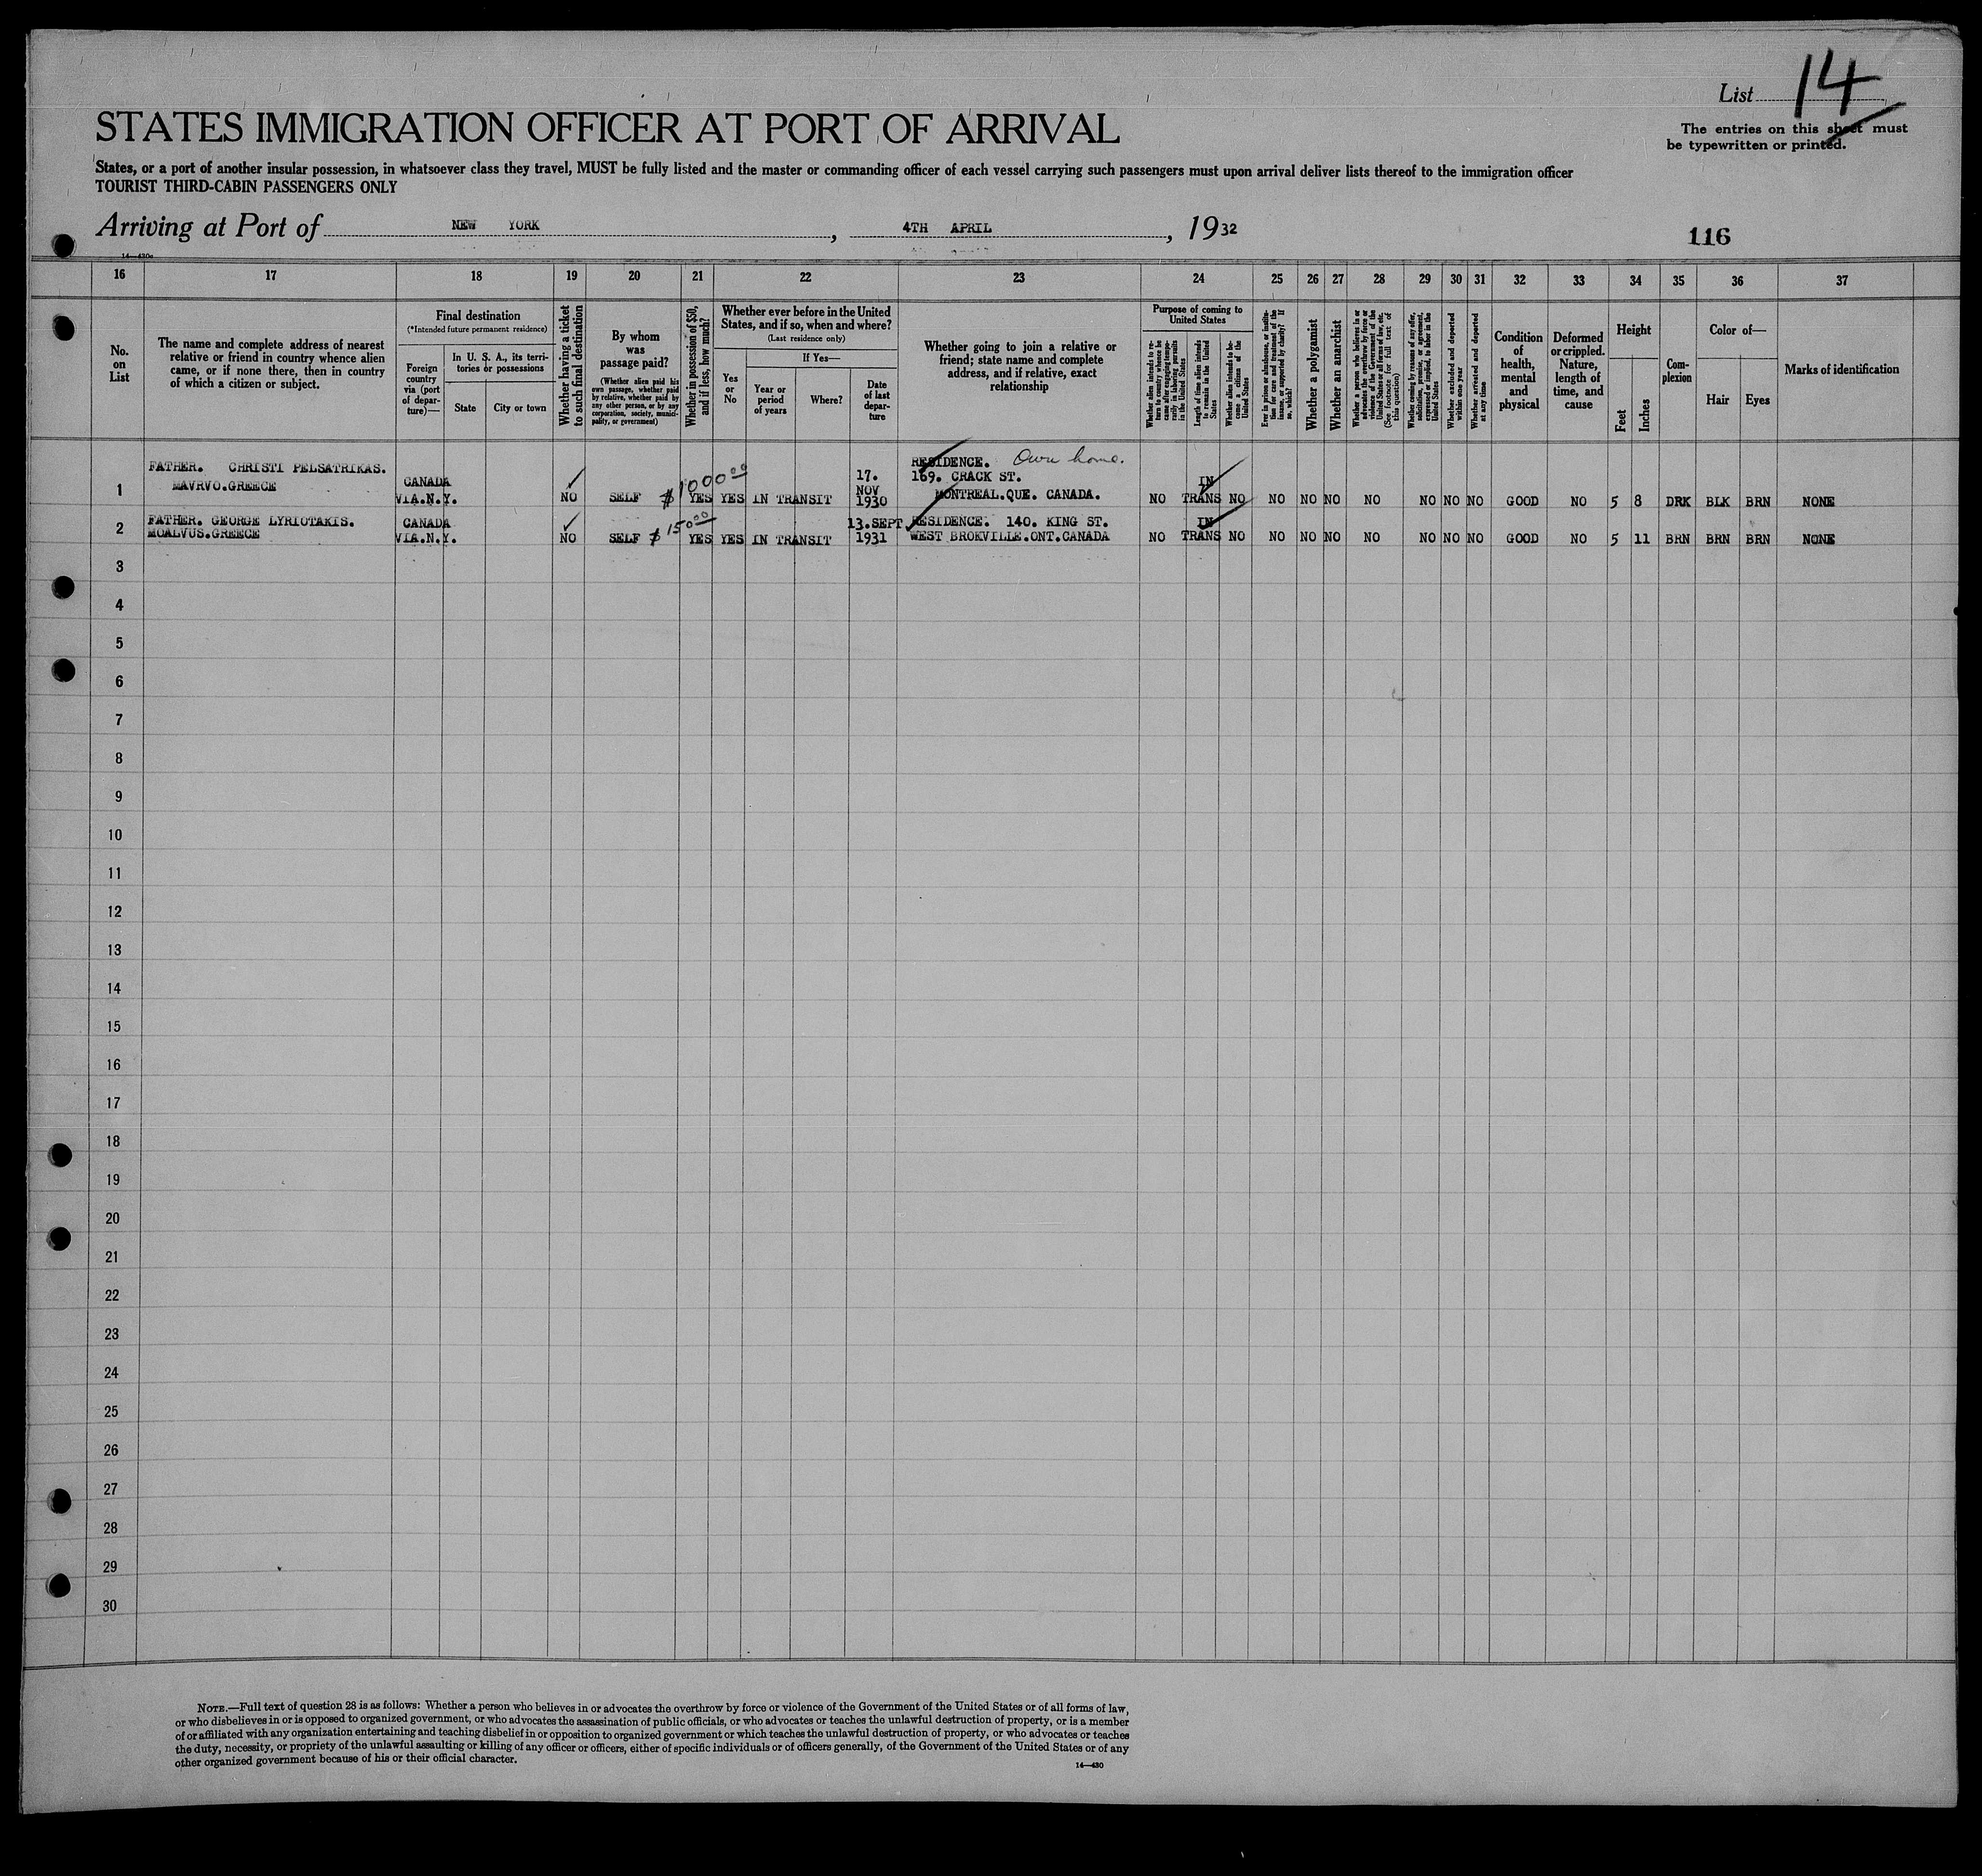 List 14
The entries on this sheet must
be typewritten or printed.
STATES IMMIGRATION OFFICER AT PORT OF ARRIVAL
States, or a port of another insular possession, in whatsoever class they travel, MUST be fully listed and the master or commanding officer of each vessel carrying such passengers must upon arrival deliver lists thereof to the immigration officer
TOURIST THIRD-CABIN PASSENGERS ONLY
Arriving at Port of NEW YORK, 4TH APRIL, 1932
116
16 17 18 19 20 21 22 23 24 25 26 27 28 29 30 31 32 33 34 35 36 37
No.
on
List
The name and complete address of nearest
relative or friend in country whence alien
came, or if none there, then in country
of which a citizen or subject.
Final destination
(*Intended future permanent residence)
Foreign
country
via (port
of depar-
ture)—
In U. S. A., its terri-
tories or possessions
State
City or town
Whether having a ticket
to such final destination
By whom
was
passage paid?
(Whether alien paid his
own passage, whether paid
by relative, whether paid by
any other person, or by any
corporation, society, munici-
pality, or government)
Whether in possession of $50,
and if less, how much?
Whether ever before in the United
States, and if so, when and where?
(Last residence only)
Yes
or
No
If Yes—
Year or
period
of years
Where?
Date
of last
depar-
ture
Whether going to join a relative or
friend; state name and complete
address, and if relative, exact
relationship
Purpose of coming to
United States
Whether alien intends to re-
turn to country whence he
came after engaging tempo-
rarily in laboring pursuits
in the United States
Length of time alien intends
to remain in the United
States
Whether alien intends to be-
come a citizen of the
United States
Ever in prison or almshouse, or institu-
tion for care and treatment of the
insane, or supported by charity? If
so, which?
Whether a polygamist
Whether an anarchist
Whether a person who believes in or
advocates the overthrow by force or
violence of the Government of the
United States or all forms of law, etc.
(See footnote for full text of
this question)
Whether coming by reasons of any offer,
solicitation, promise, or agreement,
expressed or implied, to labor in the
United States
Whether excluded and deported
within one year
Whether arrested and deported
at any time
Condition
of
health,
mental
and
physical
Deformed
or crippled.
Nature,
length of
time, and
cause
Height
Feet
Inches
Com-
plexion
Color of—
Hair
Eyes
Marks of identification
1 FATHER. CHRISTI PELSATRIKAS.
MAVRVO.GREECE
CANADA
VIA.N.Y.
NO SELF $1000.00 YES YES IN TRANSIT
17.
NOV
1930
RESIDENCE. Own home.
169. CRACK ST.
MONTREAL.QUE. CANADA.
NO IN
TRANS NO NO NO NO NO NO NO NO GOOD NO 5 8 DRK BLK BRN NONE
2 FATHER. GEORGE LYRIOTAKIS.
MOALVUS.GREECE
CANADA
VIA.N.Y.
NO SELF $150.00 YES YES IN TRANSIT
13.SEPT
1931
RESIDENCE. 140. KING ST.
WEST BROKVILLE.ONT.CANADA
NO IN
TRANS NO NO NO NO NO NO NO NO GOOD NO 5 11 BRN BRN BRN NONE
3
4
5
6
7
8
9
10
11
12
13
14
15
16
17
18
19
20
21
22
23
24
25
26
27
28
29
30
NOTE.—Full text of question 28 is as follows: Whether a person who believes in or advocates the overthrow by force or violence of the Government of the United States or of all forms of law,
or who disbelieves in or is opposed to organized government, or who advocates the assassination of public officials, or who advocates or teaches the unlawful destruction of property, or is a member
of or affiliated with any organization entertaining and teaching disbelief in or opposition to organized government or which teaches the unlawful destruction of property, or who advocates or teaches
the duty, necessity, or propriety of the unlawful assaulting or killing of any officer or officers, either of specific individuals or of officers generally, of the Government of the United States or of any
other organized government because of his or their official character.
14—430